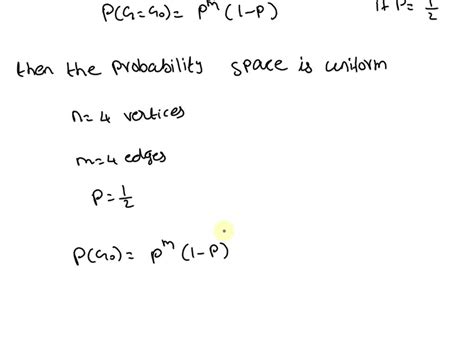 P(G=G₀) = pᵐ (1-P)    if P = 1/2
then the probability space is uniform
n=4 vertices
m=4 edges
P = 1/2
P(G₀) = pᵐ (1-P)